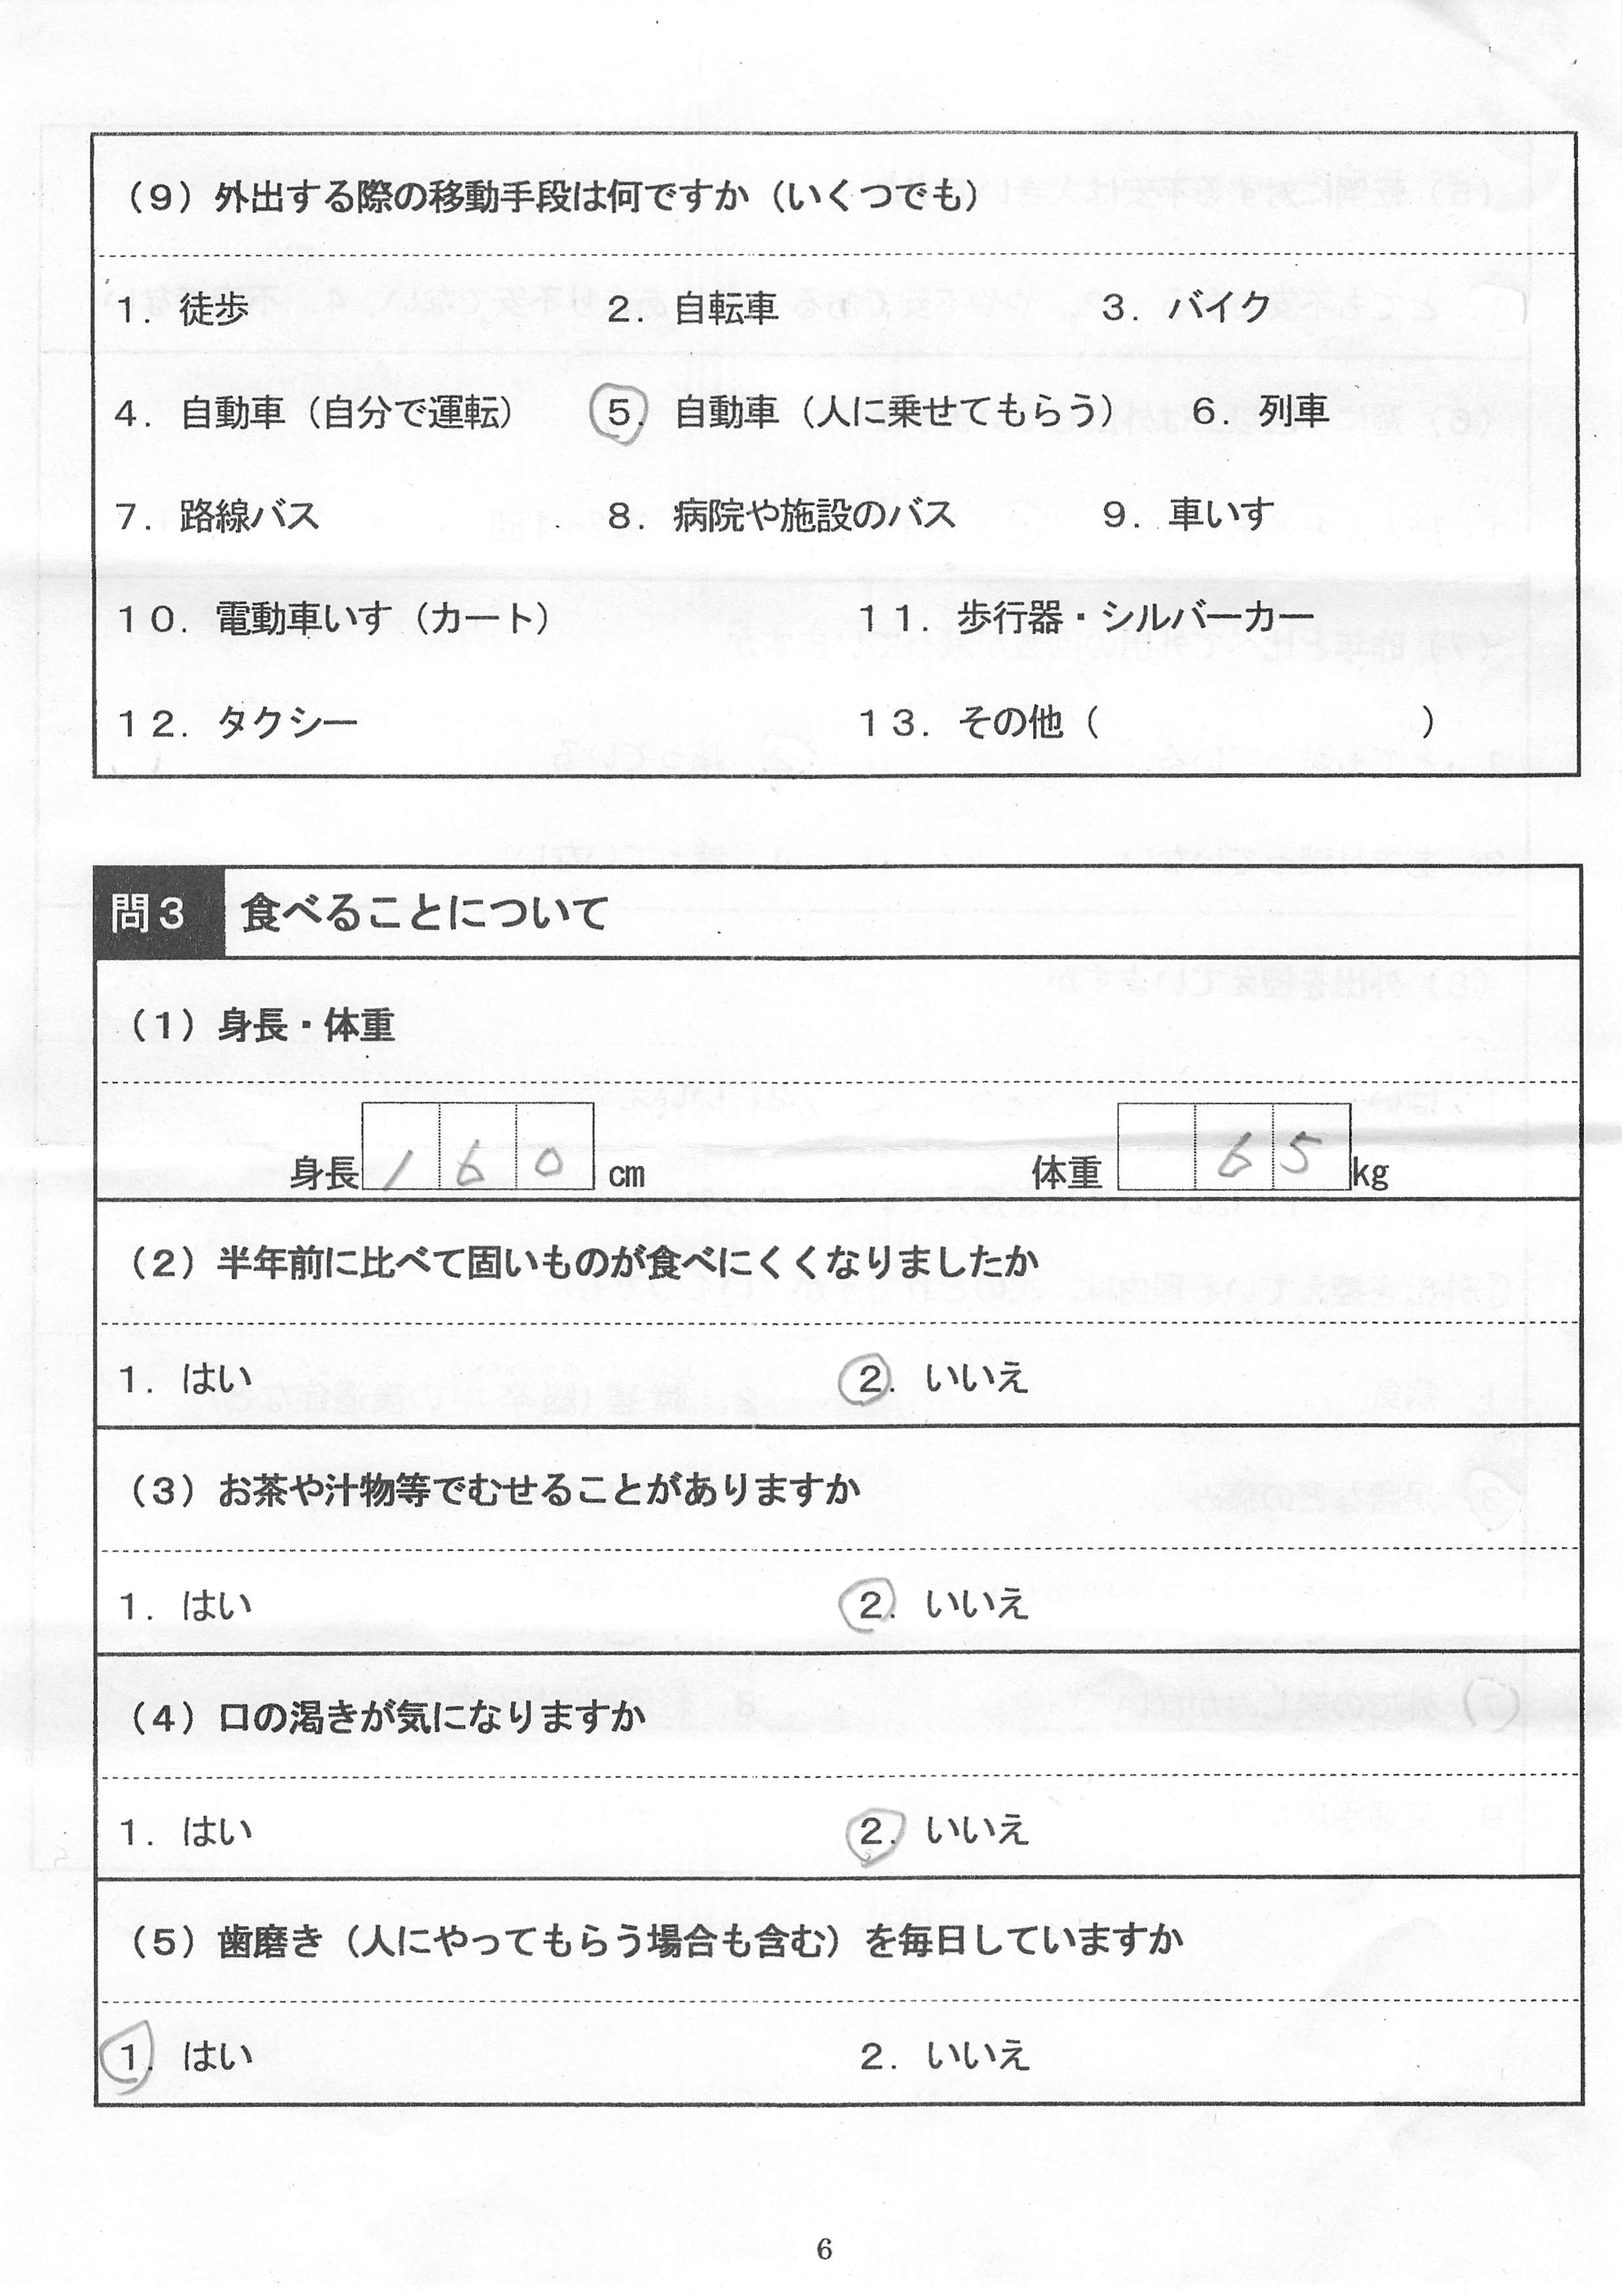 （９）外出する際の移動手段は何ですか（いくつでも）
１．徒歩　２．自転車　３．バイク
４．自動車（自分で運転）　５．自動車（人に乗せてもらう）　６．列車
７．路線バス　８．病院や施設のバス　９．車いす
１０．電動車いす（カート）　１１．歩行器・シルバーカー
１２．タクシー　１３．その他（　　　）
問３　食べることについて
（１）身長・体重
身長 1 6 0 cm　体重 6 5 kg
（２）半年前に比べて固いものが食べにくくなりましたか
１．はい　２．いいえ
（３）お茶や汁物等でむせることがありますか
１．はい　２．いいえ
（４）口の渇きが気になりますか
１．はい　２．いいえ
（５）歯磨き（人にやってもらう場合も含む）を毎日していますか
１．はい　２．いいえ
6